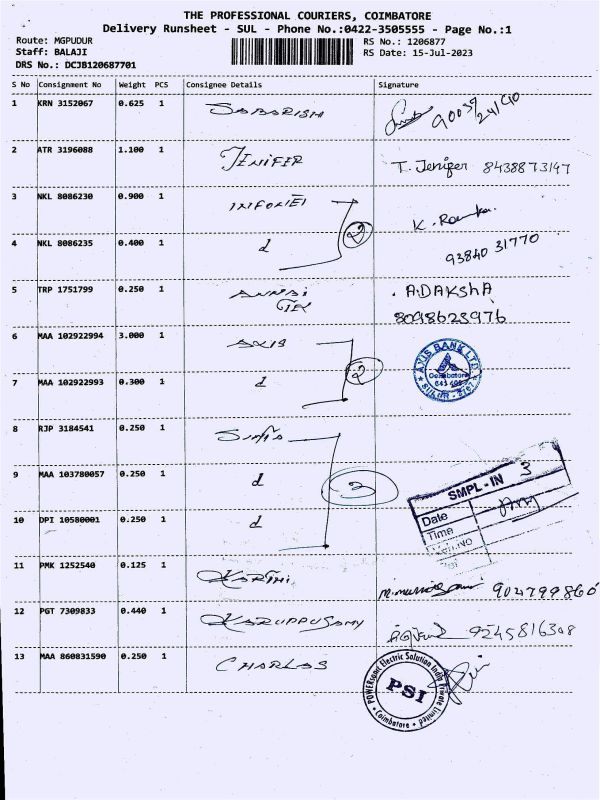 THE PROFESSIONAL COURIERS, COIMBATORE
Delivery Runsheet - SUL - Phone No.:0422-3505555 - Page No.:1
Route: MGPUDUR
Staff: BALAJI
DRS No.: DCJB120687701
RS No.: 1206877
RS Date: 15-Jul-2023
S No Consignment No Weight PCS Consignee Details Signature
1 KRN 3152067 0.625 1 SABARISH
2 ATR 3196088 1.100 1 JENIFER T. Jenifer 8438873147
3 NKL 8086230 0.900 1
2
4 NKL 8086235 0.400 1 d 93840 31770
5 TRP 1751799 0.250 1 ANNAI A.DAKSHA
8098623976
6 MAA 102922994 3.000 1 AXIS
AXIS BANK LTD
Coimbatore
2
7 MAA 102922993 0.300 1 d
8 RJP 3184541 0.250 1
9 MAA 103780057 0.250 1 d
3
SMPL - IN 3
Date
Time
10 DPI 10580001 0.250 1 d
11 PMK 1252540 0.125 1 KARTHI
12 PGT 7309833 0.440 1 KARUPPUSAMY 9245816308
13 MAA 860831590 0.250 1 CHARLAS
POWERsonic Electric Solution India Private Limited
PSI
Coimbatore